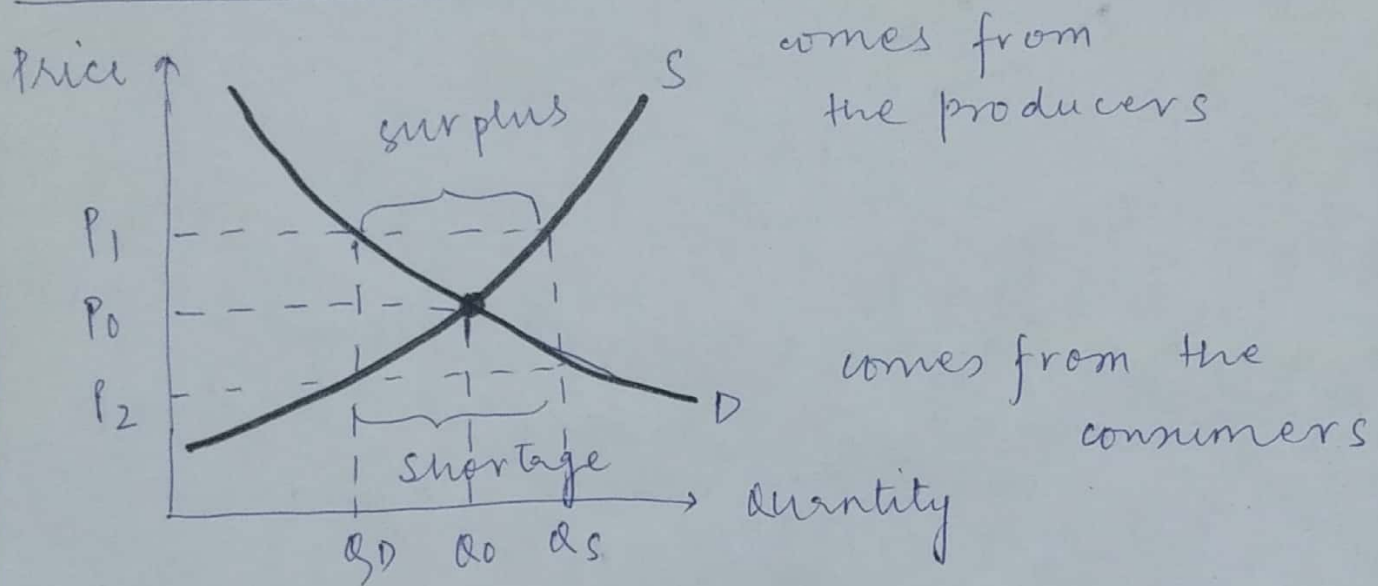 Price
S
comes from
the producers
surplus
P1
P0
P2
comes from the
consumers
D
shortage
Quantity
QD Q0 QS